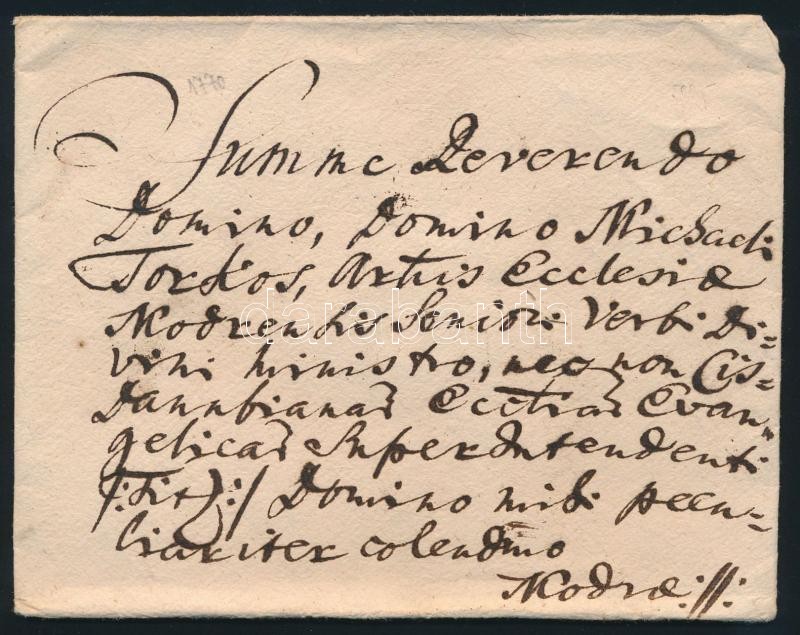 1770
Summe Reverendo
Domino, Domino Michaeli
Torkos, Artis Ecclesiæ
Modrensis Seniori Verbi Di=
vini Ministro, nec non Cis=
Danubianar Eccliar Evan=
gelicar Superintendenti
/:Tit:/ Domino mihi pecu=
liariter colendmo
Modræ://:
darabanth